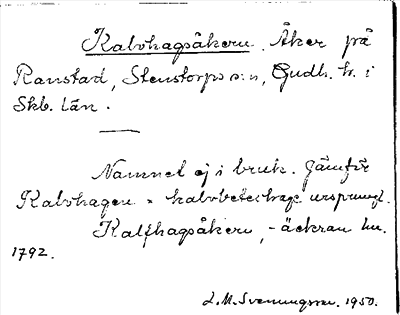 Kalvhagsåkern. Åker på
Ranstad, Stenstorps s:n, Gudh. h. i
Skb. län.
Namnet ej i bruk. Jämför
Kalvhagen = kalvbeteshage urspungl.
Kalfhagsåkern, -åckran lm.
1792.
L.M. Svenungsson. 1950.